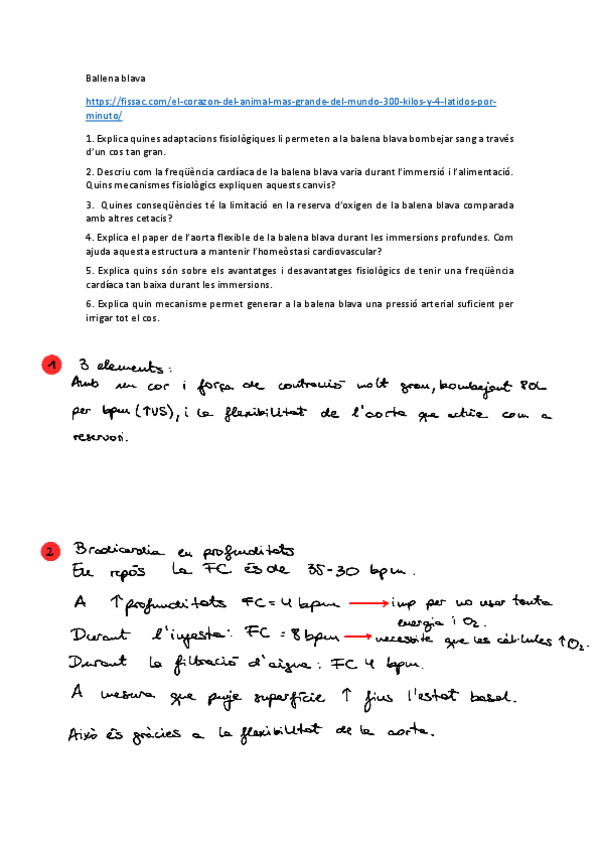 Ballena blava
https://fissac.com/el-corazon-del-animal-mas-grande-del-mundo-300-kilos-y-4-latidos-por-
minuto/
1. Explica quines adaptacions fisiològiques li permeten a la balena blava bombejar sang a través
d'un cos tan gran.
2. Descriu com la freqüència cardíaca de la balena blava varia durant l'immersió i l'alimentació.
Quins mecanismes fisiològics expliquen aquests canvis?
3. Quines conseqüències té la limitació en la reserva d'oxigen de la balena blava comparada
amb altres cetacis?
4. Explica el paper de l'aorta flexible de la balena blava durant les immersions profundes. Com
ajuda aquesta estructura a mantenir l'homeòstasi cardiovascular?
5. Explica quins són sobre els avantatges i desavantatges fisiològics de tenir una freqüència
cardíaca tan baixa durant les immersions.
6. Explica quin mecanisme permet generar a la balena blava una pressió arterial suficient per
irrigar tot el cos.
1 3 elements:
Amb un cor i força de contracció molt gran, bombejant 80L
per bpm (↑VS), i la flexibilitat de l'aorta que actúe com a
reservori.
2 Bradicardia en profunditats
En repòs la FC és de 35-30 bpm.
A ↑profunditats FC = 4 bpm → imp per no usar tanta
energia i O2.
Durant l'ingesta: FC = 8 bpm → necessite que les cèl·lules ↑O2.
Durant la filtració d'aigua: FC 4 bpm.
A mesura que puje superfície ↑ fins l'estat basal.
Això és gràcies a la flexibilitat de la aorta.